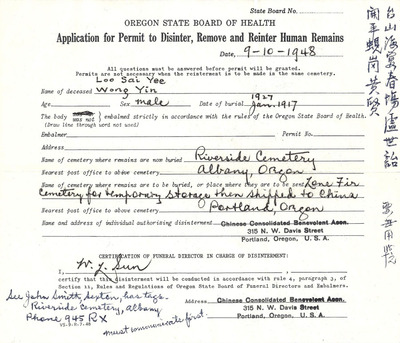 State Board No.
OREGON STATE BOARD OF HEALTH
Application for Permit to Disinter, Remove and Reinter Human Remains
Date, 9-10-1948
All questions must be answered before permit will be granted.
Permits are not necessary when the reinterment is to be made in the same cemetery.
Loo Sai Yee
Name of deceased Wong Yin
1927
Age Sex male Date of burial Jan. 1917
The body was not embalmed strictly in accordance with the rules of the Oregon State Board of Health.
(Draw line through word not used)
Embalmer Permit No.
Address
Name of cemetery where remains are now buried Riverside Cemetery
Nearest post office to above cemetery Albany, Oregon
Name of cemetery where remains are to be buried, or place where they are to be sent Lone Fir
Cemetery for temporary storage then shipped to China
Nearest post office to above cemetery Portland, Oregon
Name and address of individual authorizing disinterment Chinese Consolidated Benevolent Assn.
315 N. W. Davis Street
Portland, Oregon, U. S. A.
CERTIFICATION OF FUNERAL DIRECTOR IN CHARGE OF DISINTERMENT:
I, W. J. Sun
certify that this disinterment will be conducted in accordance with rule 4, paragraph 3, of
Section 11, Rules and Regulations of Oregon State Board of Funeral Directors and Embalmers.
See John Smith, sexton, has tags.
Riverside Cemetery, Albany
Phone 945 RX
must communicate first.
Address Chinese Consolidated Benevolent Assn.
315 N. W. Davis Street
Portland, Oregon, U. S. A.
台山海晏春場盧世
開平蜆崗黃賢